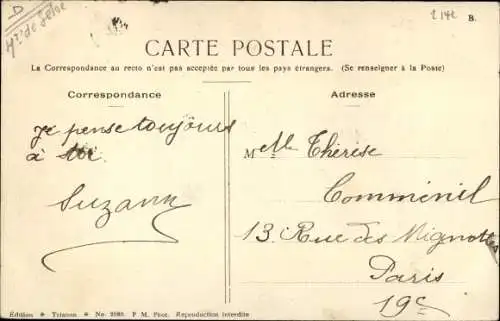 D
Mⁿ de Seine
2142
B.
CARTE POSTALE
La Correspondance au recto n'est pas acceptée par tous les pays étrangers. (Se renseigner à la Poste)
Correspondance
Adresse
Je pense toujours
à toi
Suzann
Melle Thérèse
Comménil
13. Rue des Mignottes
Paris
19e
Édition Trianon No. 2080. P. M. Phot. Reproduction interdite